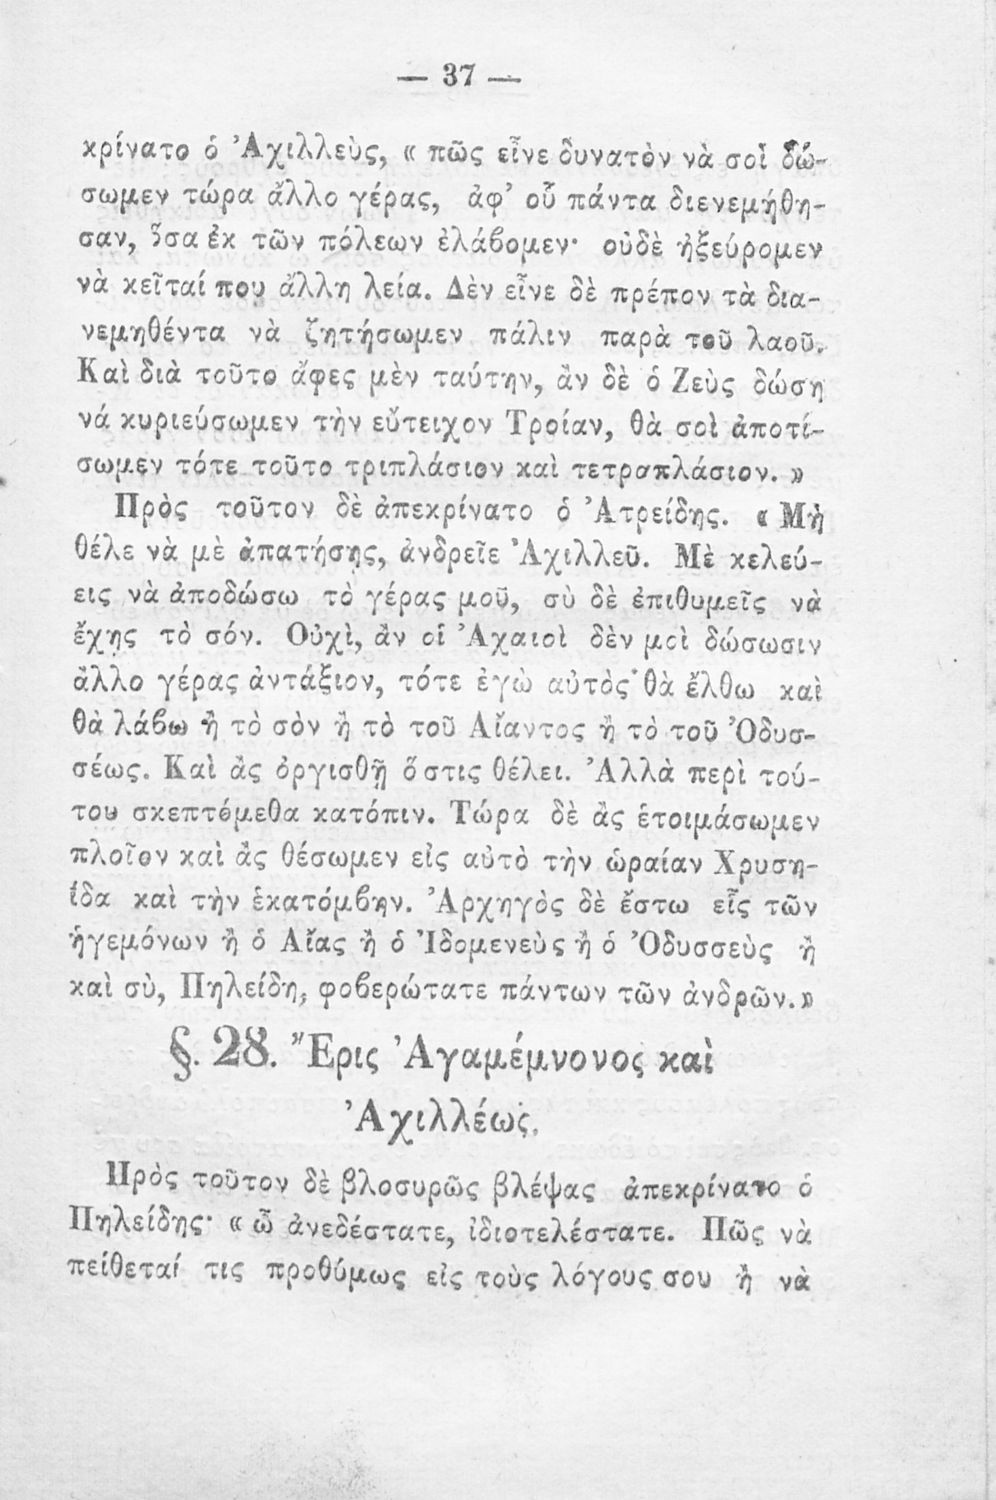 — 37 —
κρίνατο ὁ Ἀχιλλεὺς, « πῶς εἶνε δυνατὸν νὰ σοὶ δώ-
σωμεν τώρα ἄλλο γέρας, ἀφ’ οὗ πάντα διενεμήθη-
σαν, ὅσα ἐκ τῶν πόλεων ἐλάβομεν· οὐδὲ ἠξεύρομεν
νὰ κεῖταί που ἄλλη λεία. Δὲν εἶνε δὲ πρέπον τὰ δια-
νεμηθέντα νὰ ζητήσωμεν πάλιν παρὰ τοῦ λαοῦ.
Καὶ διὰ τοῦτο ἄφες μὲν ταύτην, ἂν δὲ ὁ Ζεὺς δώσῃ
νά κυριεύσωμεν τὴν εὔτειχον Τροίαν, θὰ σοὶ ἀποτί-
σωμεν τότε τοῦτο τριπλάσιον καὶ τετραπλάσιον. »
Πρὸς τοῦτον δὲ ἀπεκρίνατο ὁ Ἀτρείδης. « Μὴ
θέλε νὰ μὲ ἀπατήσῃς, ἀνδρεῖε Ἀχιλλεῦ. Μὲ κελεύ-
εις νὰ ἀποδώσω τὸ γέρας μοῦ, σὺ δὲ ἐπιθυμεῖς νὰ
ἔχῃς τὸ σόν. Οὐχὶ, ἂν οἱ Ἀχαιοὶ δὲν μοὶ δώσωσιν
ἄλλο γέρας ἀντάξιον, τότε ἐγὼ αὐτὸς θὰ ἔλθω καὶ
θὰ λάβω ἢ τὸ σὸν ἢ τὸ τοῦ Αἴαντος ἢ τὸ τοῦ Ὀδυσ-
σέως. Καὶ ἂς ὀργισθῇ ὅστις θέλει. Ἀλλὰ περὶ τού-
του σκεπτόμεθα κατόπιν. Τώρα δὲ ἂς ἑτοιμάσωμεν
πλοῖον καὶ ἂς θέσωμεν εἰς αὐτὸ τὴν ὡραίαν Χρυση-
ΐδα καὶ τὴν ἑκατόμβην. Ἀρχηγὸς δὲ ἔστω εἷς τῶν
ἡγεμόνων ἢ ὁ Αἴας ἢ ὁ Ἰδομενεὺς ἢ ὁ Ὀδυσσεὺς ἢ
καὶ σὺ, Πηλείδη, φοβερώτατε πάντων τῶν ἀνδρῶν.»
§. 28. Ἔρις Ἀγαμέμνονος καὶ
Ἀχιλλέως.
Πρὸς τοῦτον δὲ βλοσυρῶς βλέψας ἀπεκρίνατο ὁ
Πηλείδης· « ὦ ἀνεδέστατε, ἰδιοτελέστατε. Πῶς νὰ
πείθεταί τις προθύμως εἰς τοὺς λόγους σου ἢ νὰ